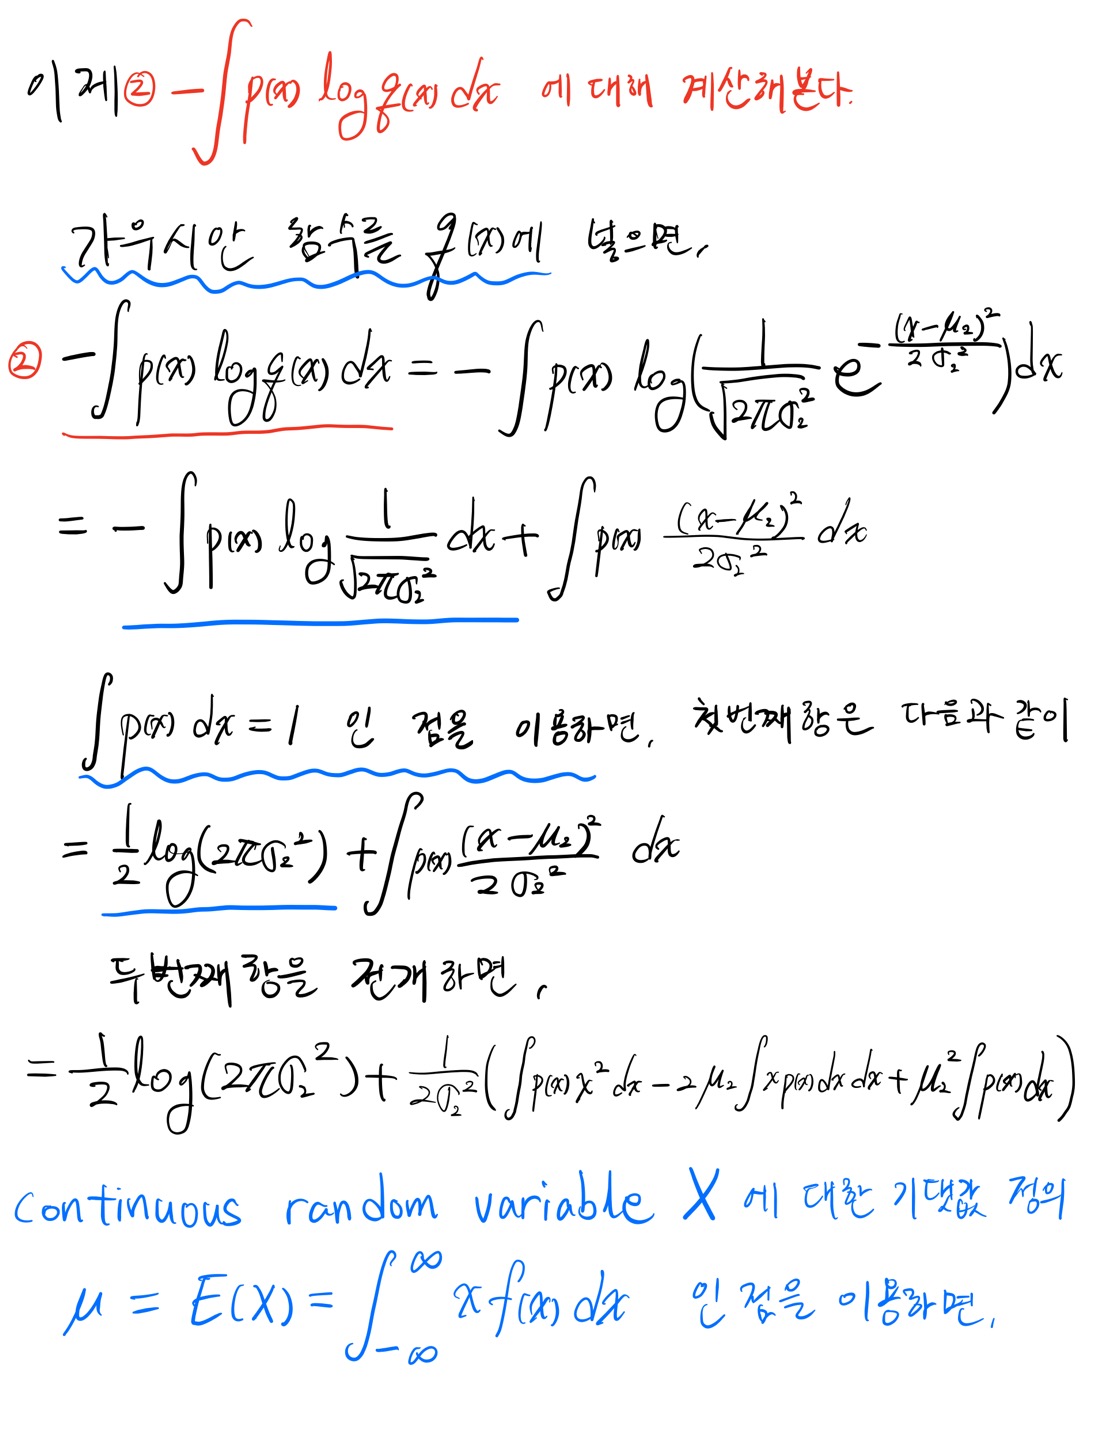 이제 ② -∫p(x) log q(x) dx 에 대해 계산해본다.
가우시안 함수를 q(x)에 넣으면,
② -∫p(x) log q(x) dx = -∫p(x) log(\frac{1}{\sqrt{2πσ₂²}} e^{-\frac{(x-μ₂)²}{2σ₂²}})dx
= -∫p(x) log \frac{1}{\sqrt{2πσ₂²}} dx + ∫p(x) \frac{(x-μ₂)²}{2σ₂²} dx
∫p(x) dx = 1 인 점을 이용하면, 첫번째항은 다음과 같이
= \frac{1}{2} log(2πσ₂²) + ∫p(x) \frac{(x-μ₂)²}{2σ₂²} dx
두번째항을 전개하면,
= \frac{1}{2} log(2πσ₂²) + \frac{1}{2σ₂²}(∫p(x)x²dx - 2μ₂∫xp(x)dx dx + μ₂²∫p(x)dx)
continuous random variable X 에 대한 기댓값 정의
μ = E(X) = ∫_{-∞}^{∞} x f(x) dx 인 점을 이용하면,